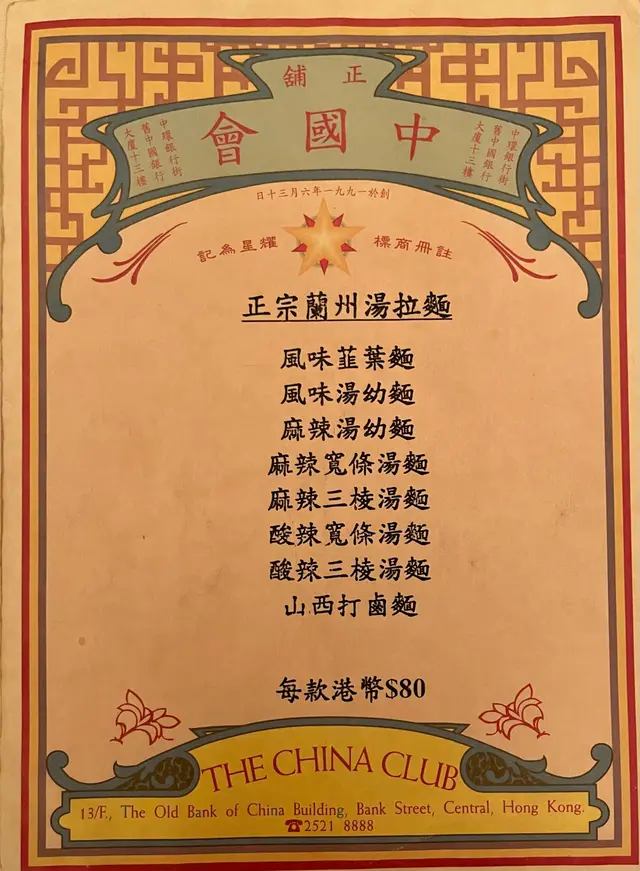 正舖
中國會
中環銀行街
舊中國銀行
大廈十三樓
中環銀行街
舊中國銀行
大廈十三樓
創於一九九一年六月三十日
註冊商標
耀星為記
正宗蘭州湯拉麵
風味韮葉麵
風味湯幼麵
麻辣湯幼麵
麻辣寬條湯麵
麻辣三棱湯麵
酸辣寬條湯麵
酸辣三棱湯麵
山西打鹵麵
每款港幣$80
THE CHINA CLUB
13/F., The Old Bank of China Building, Bank Street, Central, Hong Kong.
☎2521 8888